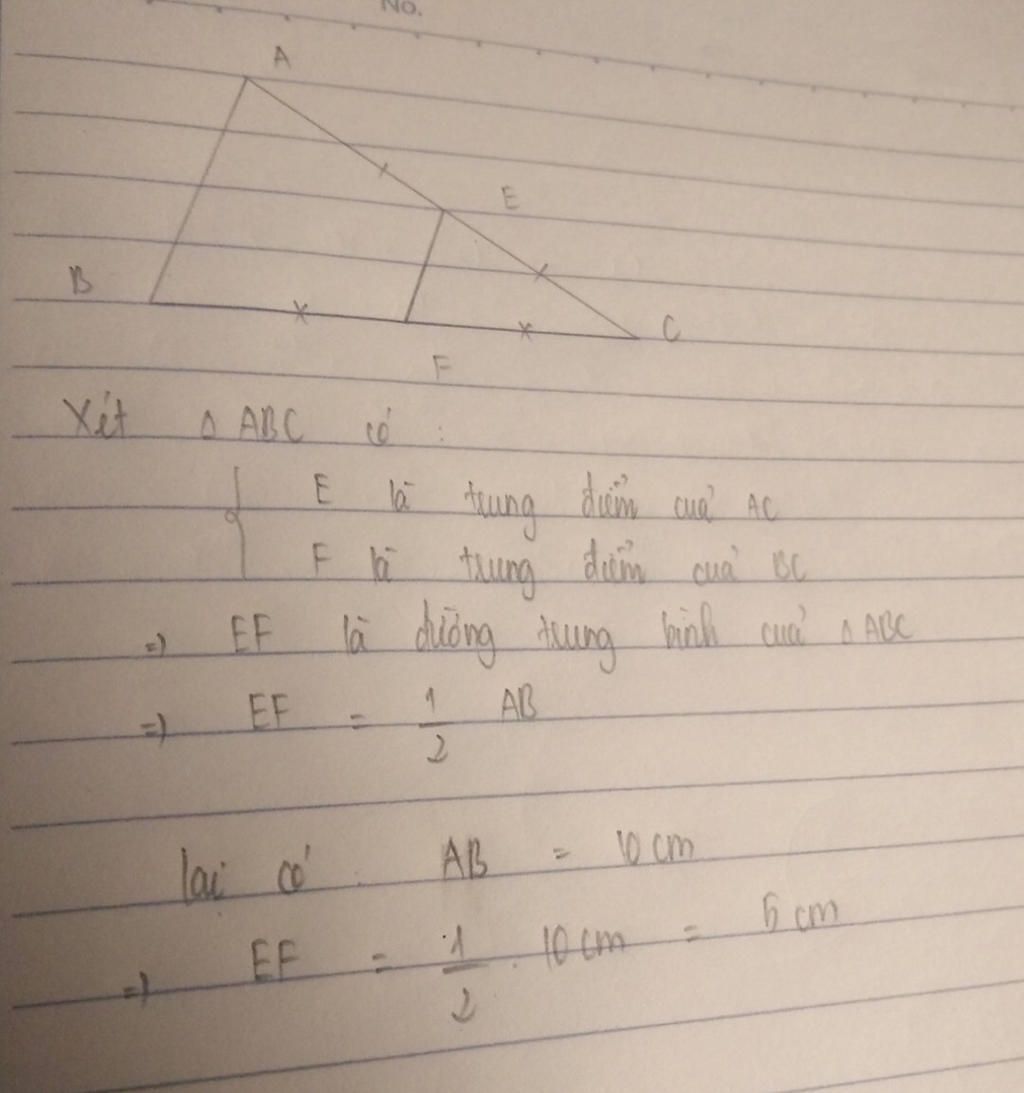 No.
A
E
B
C
F
Xét Δ ABC có :
E là trung điểm của AC
F là trung điểm của BC
=> EF là đường trung bình của Δ ABC
=> EF = 1/2 AB
lại có : AB = 10 cm
=> EF = 1/2 . 10 cm = 5 cm